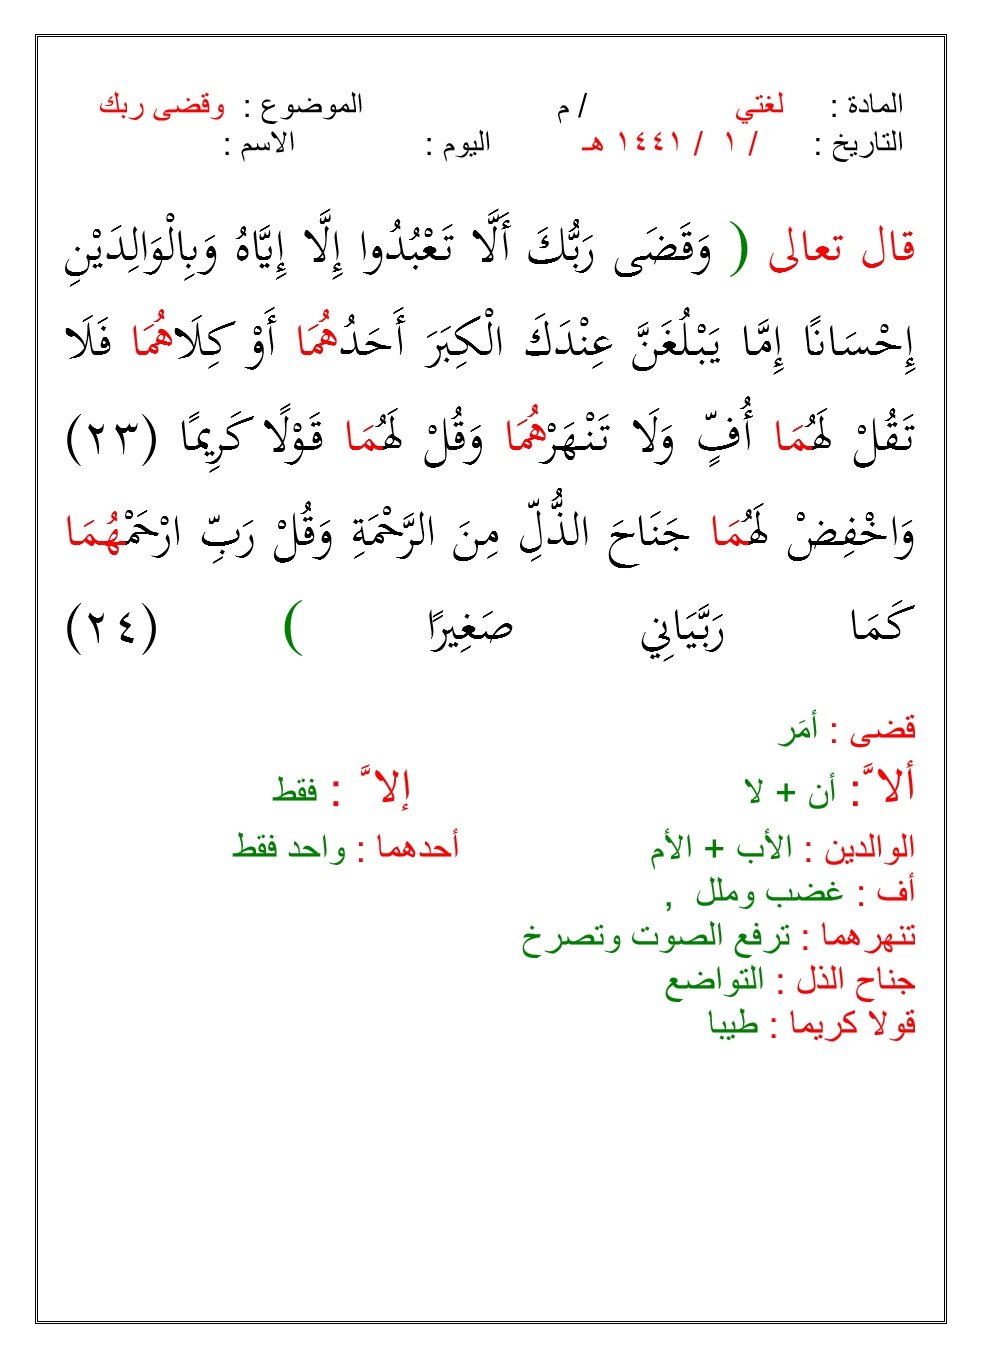 المادة : لغتي / م الموضوع : وقضى ربك
التاريخ : / ١ / ١٤٤١ هـ اليوم : الاسم :
قال تعالى ( وَقَضَى رَبُّكَ أَلَّا تَعْبُدُوا إِلَّا إِيَّاهُ وَبِالْوَالِدَيْنِ
إِحْسَانًا إِمَّا يَبْلُغَنَّ عِنْدَكَ الْكِبَرَ أَحَدُهُمَا أَوْ كِلَاهُمَا فَلَا
تَقُلْ لَهُمَا أُفٍّ وَلَا تَنْهَرْهُمَا وَقُلْ لَهُمَا قَوْلًا كَرِيمًا (٢٣)
وَاخْفِضْ لَهُمَا جَنَاحَ الذُّلِّ مِنَ الرَّحْمَةِ وَقُلْ رَبِّ ارْحَمْهُمَا
كَمَا رَبَّيَانِي صَغِيرًا ) (٢٤)
قضى : أمَر
ألاَّ : أن + لا إلاَّ : فقط
الوالدين : الأب + الأم أحدهما : واحد فقط
أف : غضب وملل ,
تنهرهما : ترفع الصوت وتصرخ
جناح الذل : التواضع
قولا كريما : طيبا